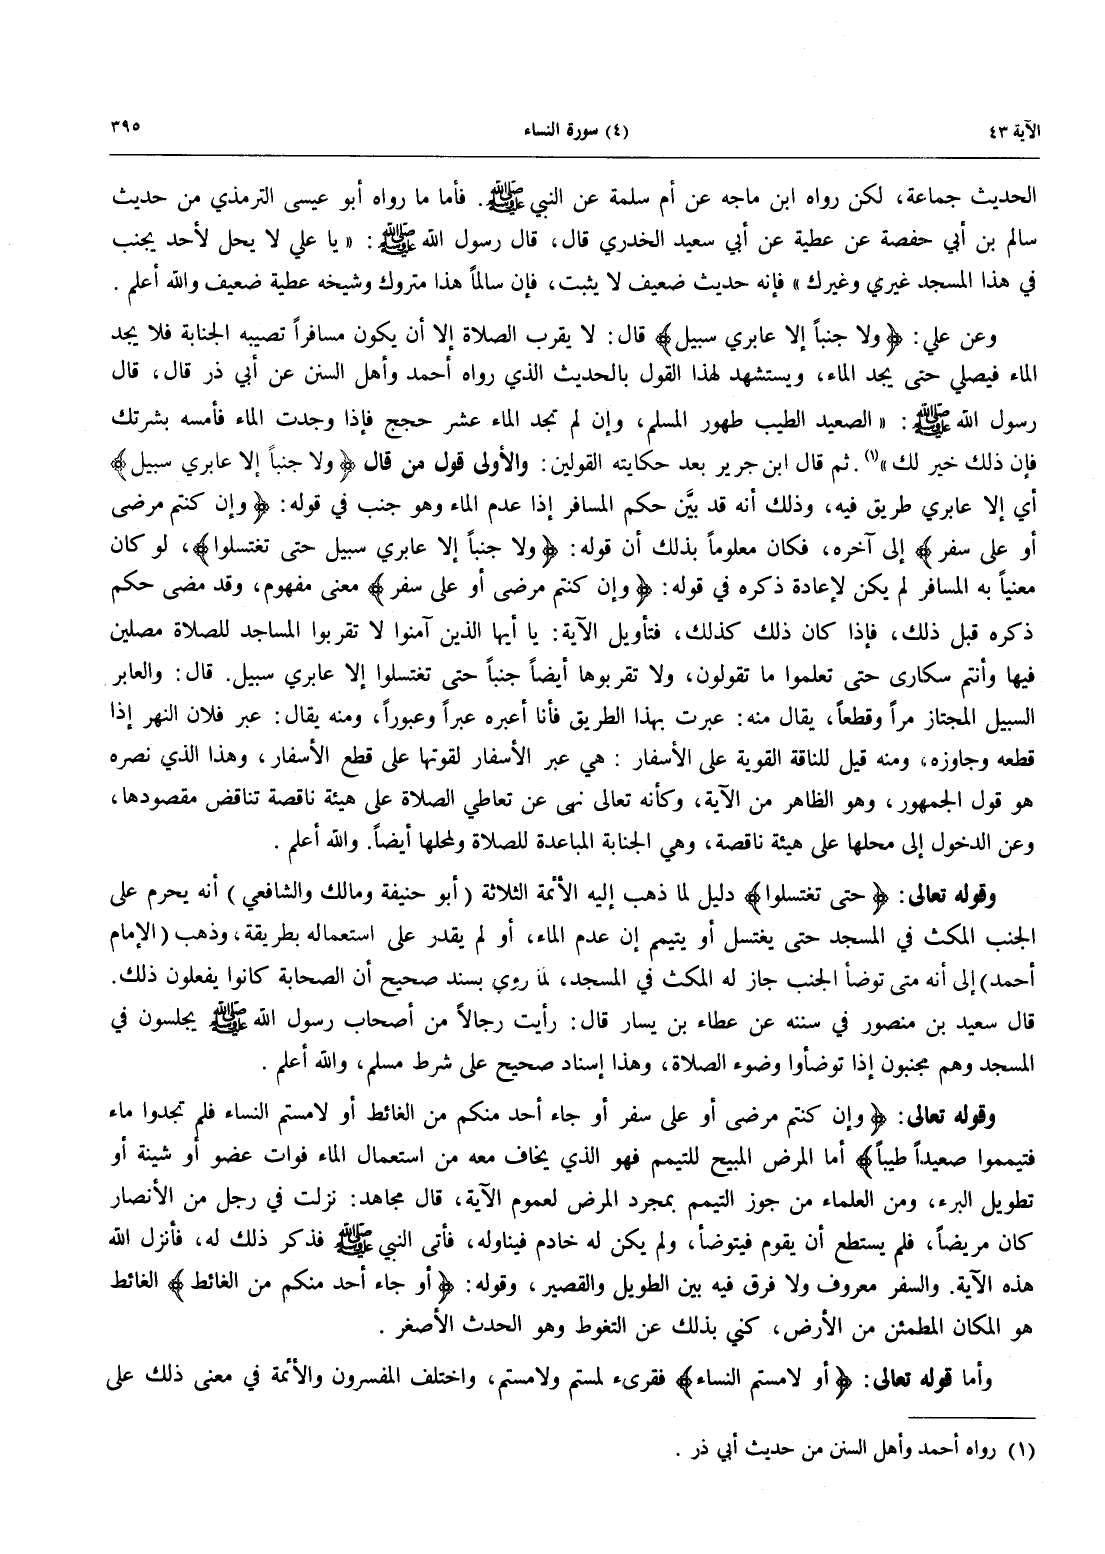 الآية ٤٣ (٤) سورة النساء ٣٩٥
الحديث جماعة، لكن رواه ابن ماجه عن أم سلمة عن النبي ﷺ. فأما ما رواه أبو عيسى الترمذي من حديث
سالم بن أبي حفصة عن عطية عن أبي سعيد الخدري قال، قال رسول الله ﷺ : « يا علي لا يحل لأحد يجنب
في هذا المسجد غيري وغيرك » فإنه حديث ضعيف لا يثبت، فإن سالماً هذا متروك وشيخه عطية ضعيف والله أعلم .
وعن علي: ﴿ ولا جنباً إلا عابري سبيل ﴾ قال: لا يقرب الصلاة إلا أن يكون مسافراً تصيبه الجنابة فلا يجد
الماء فيصلي حتى يجد الماء، ويستشهد لهذا القول بالحديث الذي رواه أحمد وأهل السنن عن أبي ذر قال، قال
رسول الله ﷺ : « الصعيد الطيب طهور المسلم، وإن لم تجد الماء عشر حجج فإذا وجدت الماء فأمسه بشرتك
فإن ذلك خير لك »(١). ثم قال ابن جرير بعد حكايته القولين: والأولى قول من قال ﴿ ولا جنباً إلا عابري سبيل ﴾
أي إلا عابري طريق فيه، وذلك أنه قد بيَّن حكم المسافر إذا عدم الماء وهو جنب في قوله: ﴿ وإن كنتم مرضى
أو على سفر ﴾ إلى آخره، فكان معلوماً بذلك أن قوله: ﴿ ولا جنباً إلا عابري سبيل حتى تغتسلوا ﴾، لو كان
معنياً به المسافر لم يكن لإعادة ذكره في قوله: ﴿ وإن كنتم مرضى أو على سفر ﴾ معنى مفهوم، وقد مضى حكم
ذكره قبل ذلك، فإذا كان ذلك كذلك، فتأويل الآية: يا أيها الذين آمنوا لا تقربوا المساجد للصلاة مصلين
فيها وأنتم سكارى حتى تعلموا ما تقولون، ولا تقربوها أيضاً جنباً حتى تغتسلوا إلا عابري سبيل. قال: والعابر
السبيل المجتاز مراً وقطعاً، يقال منه: عبرت بهذا الطريق فأنا أعبره عبراً وعبوراً، ومنه يقال: عبر فلان النهر إذا
قطعه وجاوزه، ومنه قيل للناقة القوية على الأسفار : هي عبر الأسفار لقوتها على قطع الأسفار، وهذا الذي نصره
هو قول الجمهور، وهو الظاهر من الآية، وكأنه تعالى نهى عن تعاطي الصلاة على هيئة ناقصة تناقض مقصودها،
وعن الدخول إلى محلها على هيئة ناقصة، وهي الجنابة المباعدة للصلاة ولمحلها أيضاً. والله أعلم .
وقوله تعالى: ﴿ حتى تغتسلوا ﴾ دليل لما ذهب إليه الأئمة الثلاثة ( أبو حنيفة ومالك والشافعي ) أنه يحرم على
الجنب المكث في المسجد حتى يغتسل أو يتيمم إن عدم الماء، أو لم يقدر على استعماله بطريقة، وذهب ( الإمام
أحمد ) إلى أنه متى توضأ الجنب جاز له المكث في المسجد، لما روي بسند صحيح أن الصحابة كانوا يفعلون ذلك.
قال سعيد بن منصور في سننه عن عطاء بن يسار قال: رأيت رجالاً من أصحاب رسول الله ﷺ يجلسون في
المسجد وهم مجنبون إذا توضأوا وضوء الصلاة، وهذا إسناد صحيح على شرط مسلم، والله أعلم .
وقوله تعالى: ﴿ وإن كنتم مرضى أو على سفر أو جاء أحد منكم من الغائط أو لامستم النساء فلم تجدوا ماء
فتيمموا صعيداً طيباً ﴾ أما المرض المبيح للتيمم فهو الذي يخاف معه من استعمال الماء فوات عضو أو شينة أو
تطويل البرء، ومن العلماء من جوز التيمم بمجرد المرض لعموم الآية، قال مجاهد: نزلت في رجل من الأنصار
كان مريضاً، فلم يستطع أن يقوم فيتوضأ، ولم يكن له خادم فيناوله، فأتى النبي ﷺ فذكر ذلك له، فأنزل الله
هذه الآية. والسفر معروف ولا فرق فيه بين الطويل والقصير، وقوله: ﴿ أو جاء أحد منكم من الغائط ﴾ الغائط
هو المكان المطمئن من الأرض، كني بذلك عن التغوط وهو الحدث الأصغر .
وأما قوله تعالى: ﴿ أو لامستم النساء ﴾ فقرىء لمستم ولامستم، واختلف المفسرون والأئمة في معنى ذلك على
(١) رواه أحمد وأهل السنن من حديث أبي ذر .